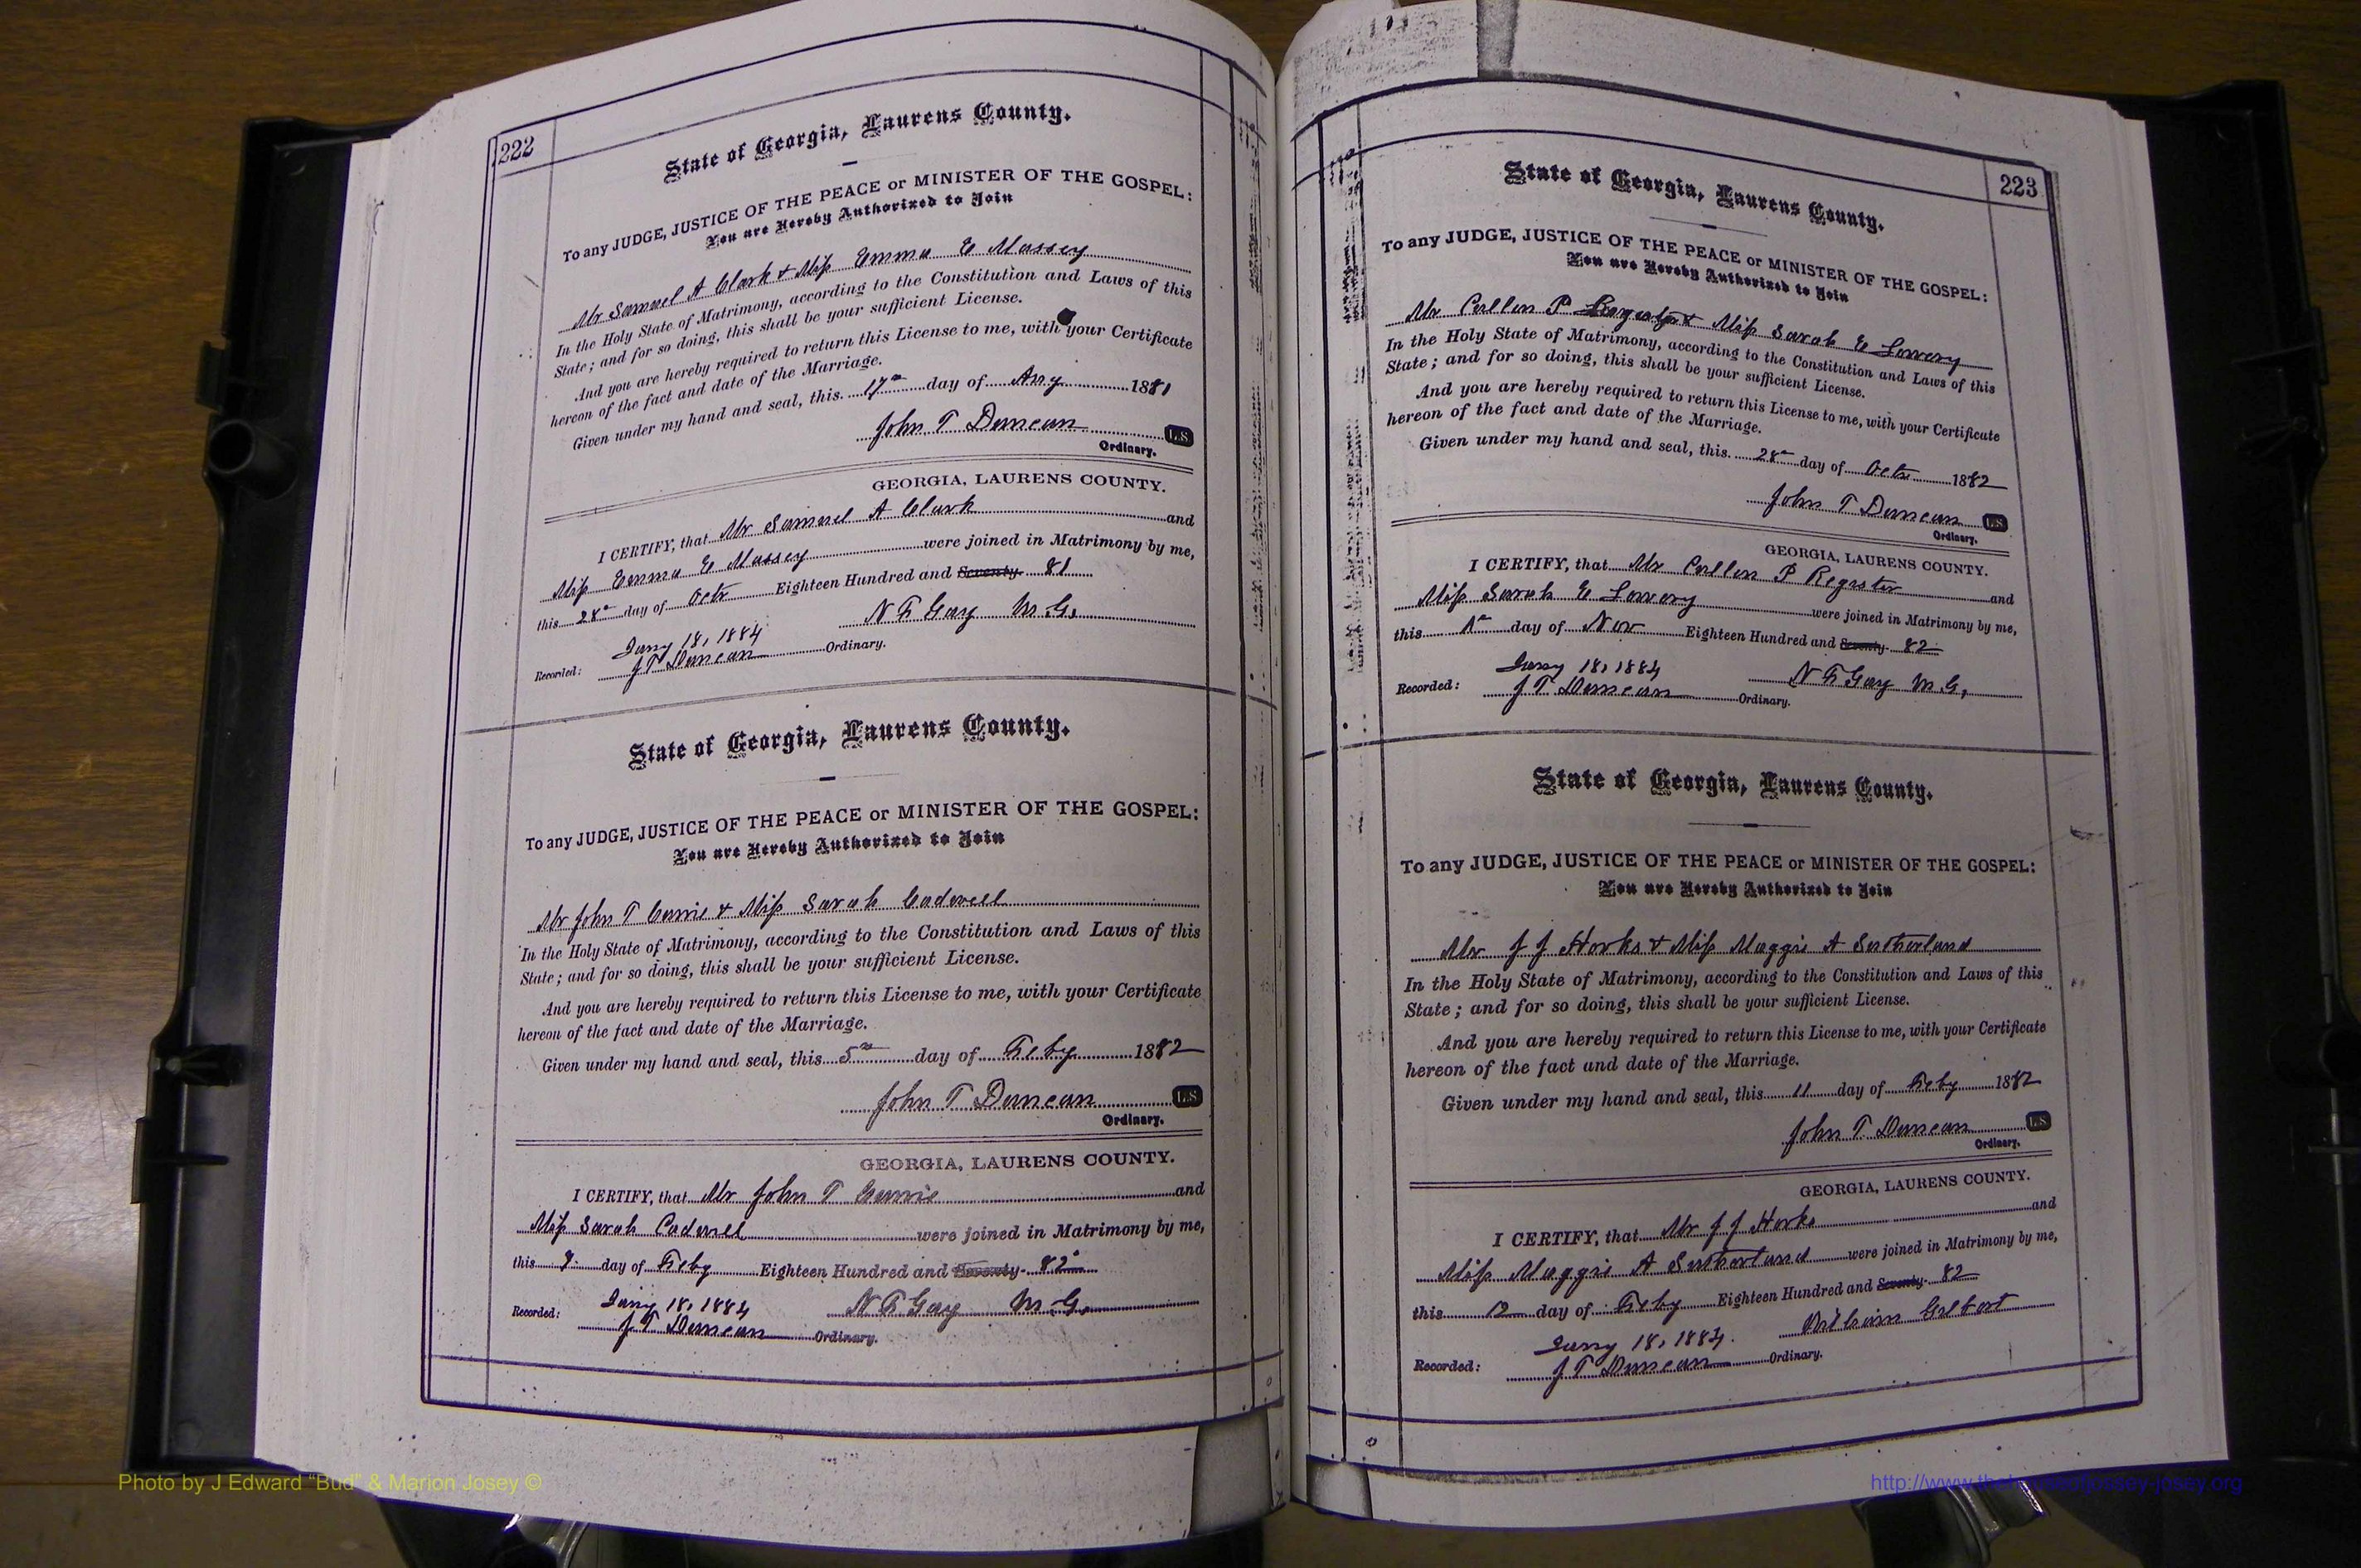 222
State of Georgia, Laurens County.
To any JUDGE, JUSTICE OF THE PEACE or MINISTER OF THE GOSPEL:
You are Hereby Authorized to Join
Mr Samuel A Clark & Miss Emma E Massey
In the Holy State of Matrimony, according to the Constitution and Laws of this
State; and for so doing, this shall be your sufficient License.
And you are hereby required to return this License to me, with your Certificate
hereon of the fact and date of the Marriage.
Given under my hand and seal, this 17th day of Aug 1881
John T Duncan L.S.
Ordinary.
GEORGIA, LAURENS COUNTY.
I CERTIFY, that Mr Samuel A Clark and
Miss Emma E Massey were joined in Matrimony by me,
this 28th day of Octr Eighteen Hundred and Seventy- 81
N F Gay M.G.
Jany 18, 1884
Recorded: J T Duncan Ordinary.
State of Georgia, Laurens County.
To any JUDGE, JUSTICE OF THE PEACE or MINISTER OF THE GOSPEL:
You are Hereby Authorized to Join
Mr John T Currie & Miss Sarah Cadwell
In the Holy State of Matrimony, according to the Constitution and Laws of this
State; and for so doing, this shall be your sufficient License.
And you are hereby required to return this License to me, with your Certificate
hereon of the fact and date of the Marriage.
Given under my hand and seal, this 5th day of Feby 1882
John T Duncan L.S.
Ordinary.
GEORGIA, LAURENS COUNTY.
I CERTIFY, that Mr John T Currie and
Miss Sarah Cadwell were joined in Matrimony by me,
this day of Feby Eighteen Hundred and Seventy- 82
N F Gay M.G.
Jany 18, 1884
Recorded: J T Duncan Ordinary.
223
State of Georgia, Laurens County.
To any JUDGE, JUSTICE OF THE PEACE or MINISTER OF THE GOSPEL:
You are Hereby Authorized to Join
Mr Cullen P & Miss Sarah E Lowery
In the Holy State of Matrimony, according to the Constitution and Laws of this
State; and for so doing, this shall be your sufficient License.
And you are hereby required to return this License to me, with your Certificate
hereon of the fact and date of the Marriage.
Given under my hand and seal, this 28th day of Octr 1882
John T Duncan L.S.
Ordinary.
GEORGIA, LAURENS COUNTY.
I CERTIFY, that Mr Cullen P Register and
Miss Sarah E Lowery were joined in Matrimony by me,
this day of Nov Eighteen Hundred and Seventy- 82
N F Gay M.G.
Jany 18, 1884
Recorded: J T Duncan Ordinary.
State of Georgia, Laurens County.
To any JUDGE, JUSTICE OF THE PEACE or MINISTER OF THE GOSPEL:
You are Hereby Authorized to Join
Mr J J Horks & Miss Maggie A Sutherland
In the Holy State of Matrimony, according to the Constitution and Laws of this
State; and for so doing, this shall be your sufficient License.
And you are hereby required to return this License to me, with your Certificate
hereon of the fact and date of the Marriage.
Given under my hand and seal, this 11 day of Feby 1882
John T Duncan L.S.
Ordinary.
GEORGIA, LAURENS COUNTY.
I CERTIFY, that Mr J J Horks and
Miss Maggie A Sutherland were joined in Matrimony by me,
this 12 day of Feby Eighteen Hundred and Seventy- 82
William Gilbert
Jany 18, 1884.
Recorded: J T Duncan Ordinary.
Photo by J Edward "Bud" & Marion Josey ©
http://www.thehouseofjossey-josey.org